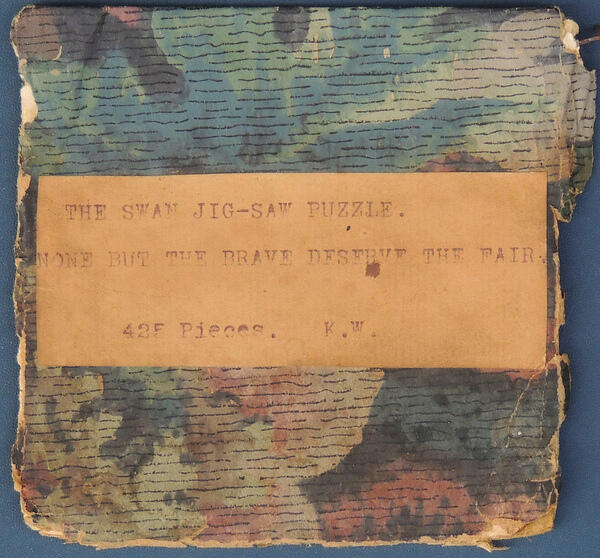 THE SWAN JIG-SAW PUZZLE.
NONE BUT THE BRAVE DESERVE THE FAIR.
Pieces. K.W.